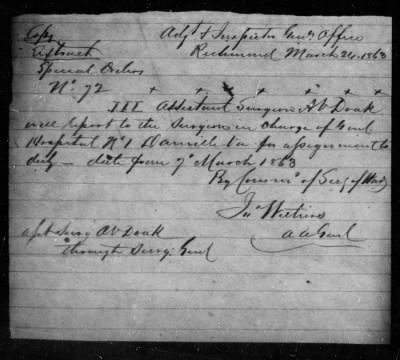 Copy Adjt & Inspector Genls Office
Extract Richmond March 24, 1863
Special Orders
No 72 + + + + + +
III Assistant Surgeon A V Doak
will report to the Surgeon in charge of Genl
Hospital No 1 Danville Va for assignment to
duty — date from 7" March 1863
By Comm of Secy of War
Jno Withers
A A Genl
asst Surg AV Doak
through Surg: Genl